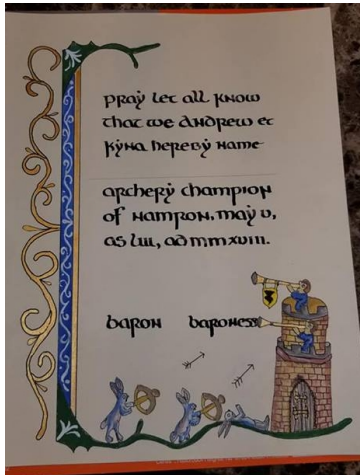 pray let all know
that we Andrew et
Kyna hereby name
archery champion
of Nampron, may v,
as liii, ad mmxviii.
baron baroness